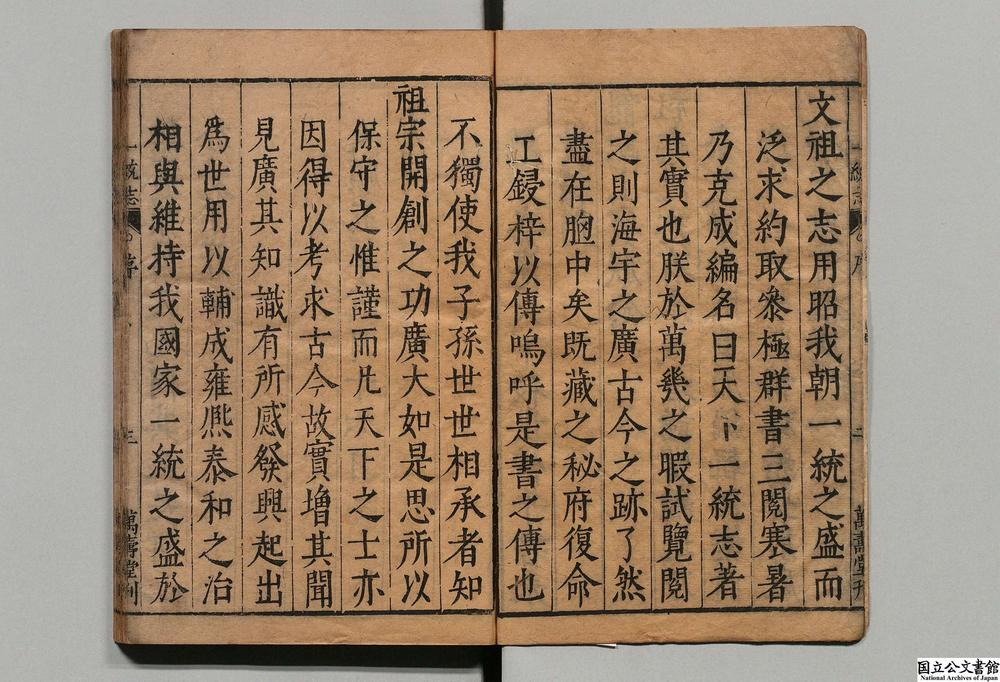 文祖之志用昭我朝一統之盛而
泛求約取叅極群書三閱寒暑
乃克成編名曰天下一統志著
其實也朕於萬幾之暇試覽閱
之則海宇之廣古今之跡了然
盡在胸中矣既藏之秘府復命
工鋟梓以傳嗚呼是書之傳也
不獨使我子孫世世相承者知
祖宗開創之功廣大如是思所以
保守之惟謹而凡天下之士亦
因得以考求古今故實增其聞
見廣其知識有所感發興起出
為世用以輔成雍熙泰和之治
相與維持我國家一統之盛於
一統志
序
二
萬壽堂刊
一統志
序
三
萬壽堂刊
国立公文書館
National Archives of Japan